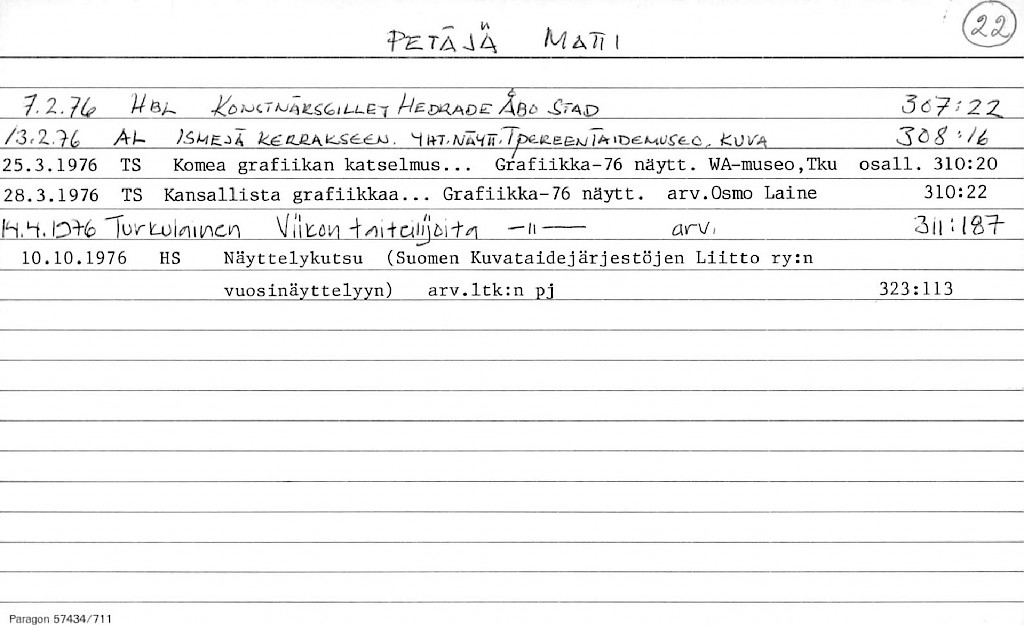 PETÄJÄ MATTI 22
7.2.76 HBL KONSTNÄRSGILLET HEDRADE ÅBO STAD 307:22
13.2.76 AL ISMEJÄ KERRAKSEEN. YHT.NÄYTT. TPEREEN TAIDEMUSEO. KUVA 308:16
25.3.1976 TS Komea grafiikan katselmus... Grafiikka-76 näytt. WA-museo,Tku osall. 310:20
28.3.1976 TS Kansallista grafiikkaa... Grafiikka-76 näytt. arv.Osmo Laine 310:22
14.4.1976 Turkulainen Viikon taiteilijoita -"- arv. 311:187
10.10.1976 HS Näyttelykutsu (Suomen Kuvataidejärjestöjen Liitto ry:n
vuosinäyttelyyn) arv.ltk:n pj 323:113
Paragon 57434/711